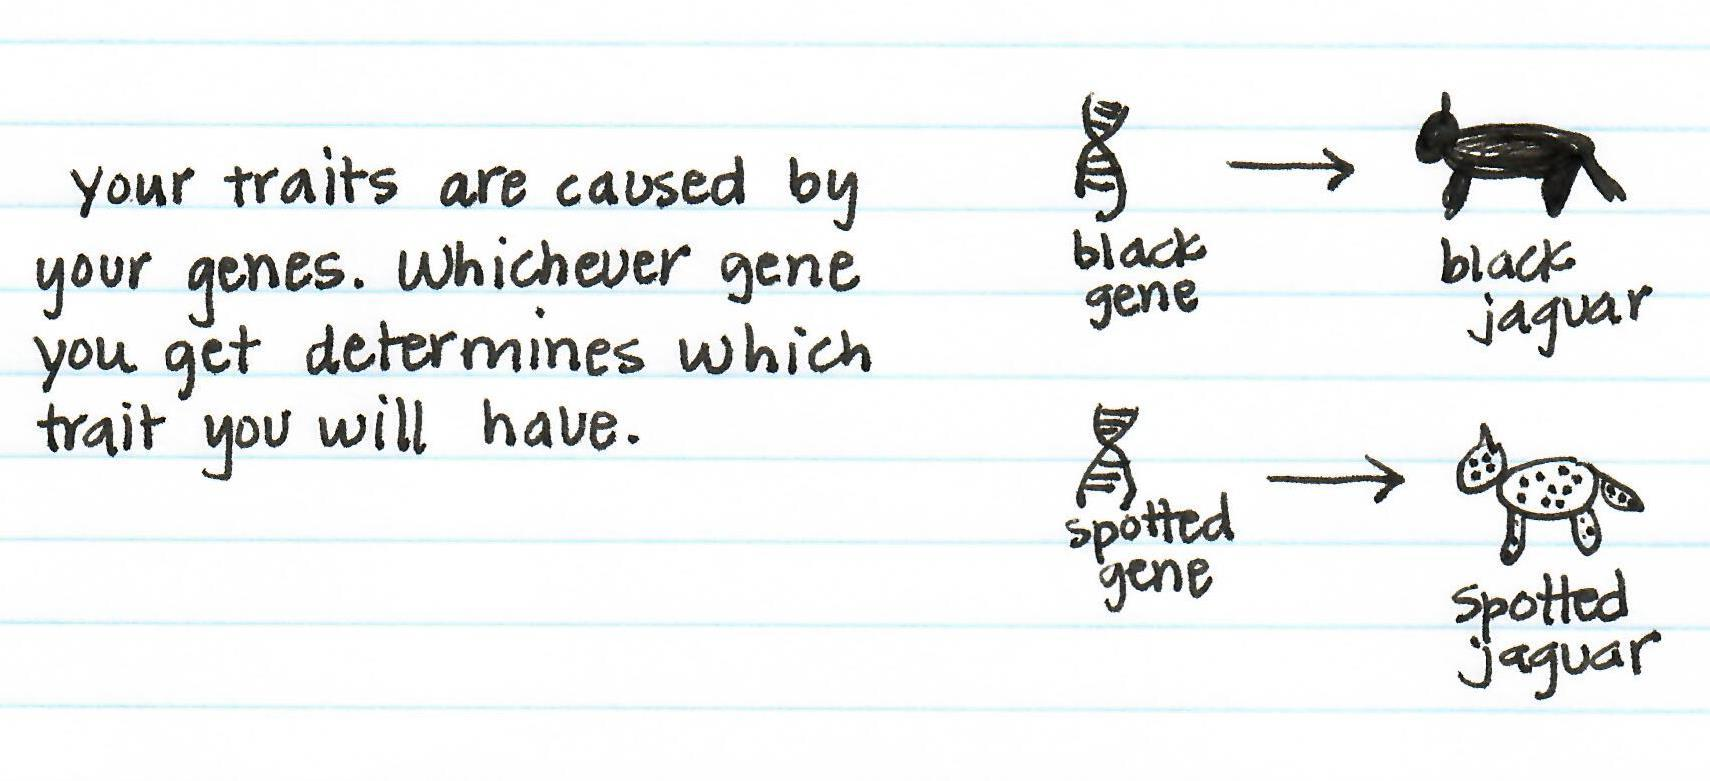 Your traits are caused by
your genes. Whichever gene
you get determines which
trait you will have.
black
gene
black
jaguar
spotted
gene
spotted
jaguar